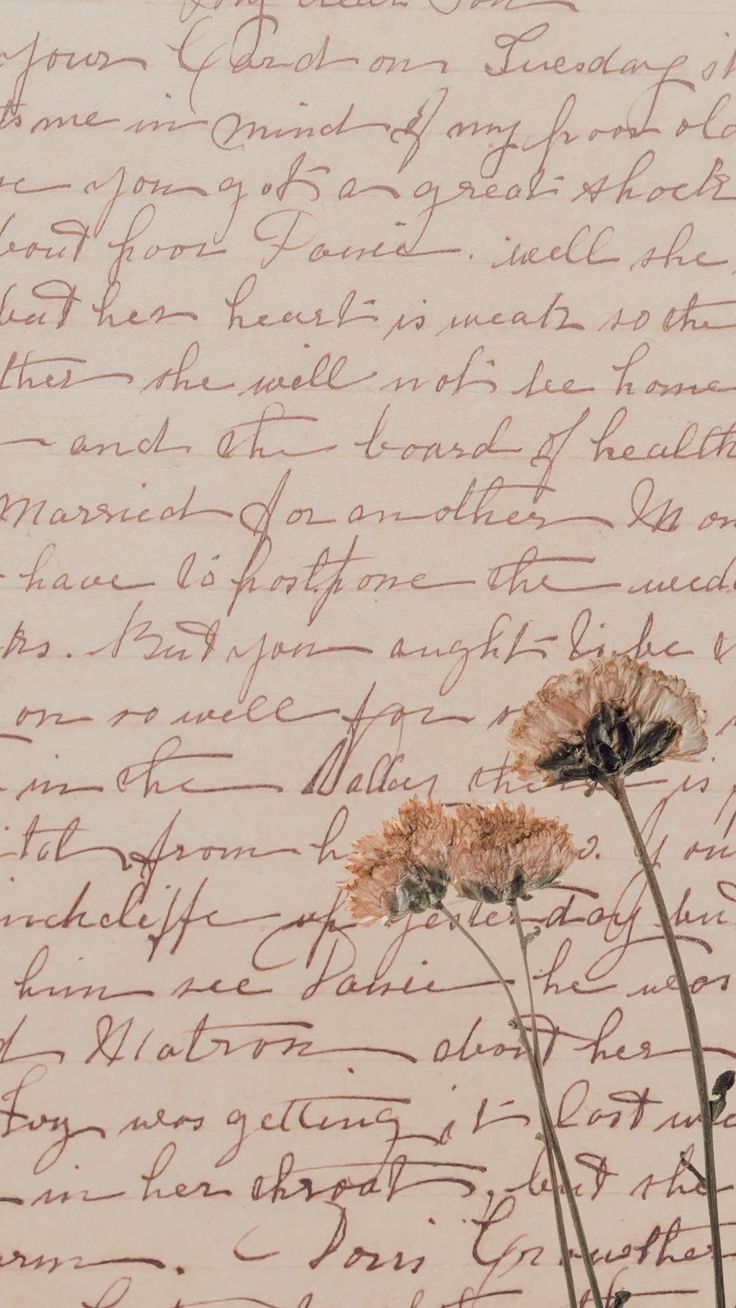 My dear Son
your Card on Tuesday it
me in mind of my poor old
you got a great shock
bout poor Janie. well she
but her heart is weak so the
ther she will not be home
and the board of health
Married for another Mon
have to postpone the wedd
ks. But you aught to be
on so well for
in the Valley there is
ital from h
nchcliffe up yesterday but
him see Janie he was
Matron about her
Ivy was getting it last we
in her throat, but she
arm. Doris Grandmother